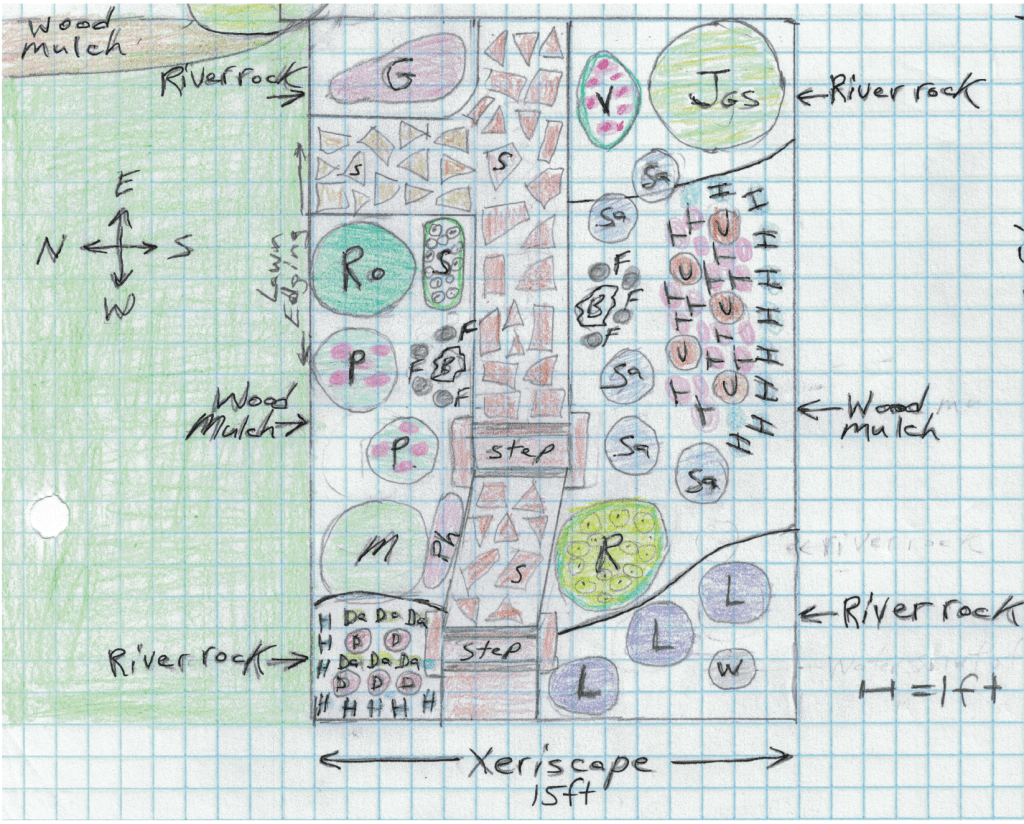 Wood
mulch
G
Riverrock
V
JGS
River rock
s
S
Sa
E
N
S
W
Lawn
Edging
Sa
H
H
T
T
U
T
T
H
Ro
S
F
B
F
F
U
T
T
T
H
T
T
U
T
H
H
P
F
F
B
F
Sa
U
T
T
T
U
H
H
Wood
Mulch
T
Wood
mulch
P.
step
Sa
H
H
Sa
M
Ph
S
R
L
River rock
H
Da Da Da
H
D D
L
River rock
H
Da Da Da
step
W
H
D D D
L
H = 1ft
H H H H H
Xeriscape
15ft